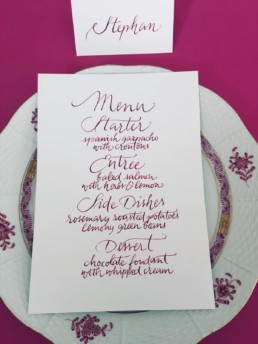 Stephan
Menu
Starter
spanish gazpacho
with croutons
Entrée
baked salmon
with herbs & lemon
Side Dishes
rosemary roasted potatoes
lemony green beans
Dessert
chocolate fondant
with whipped cream